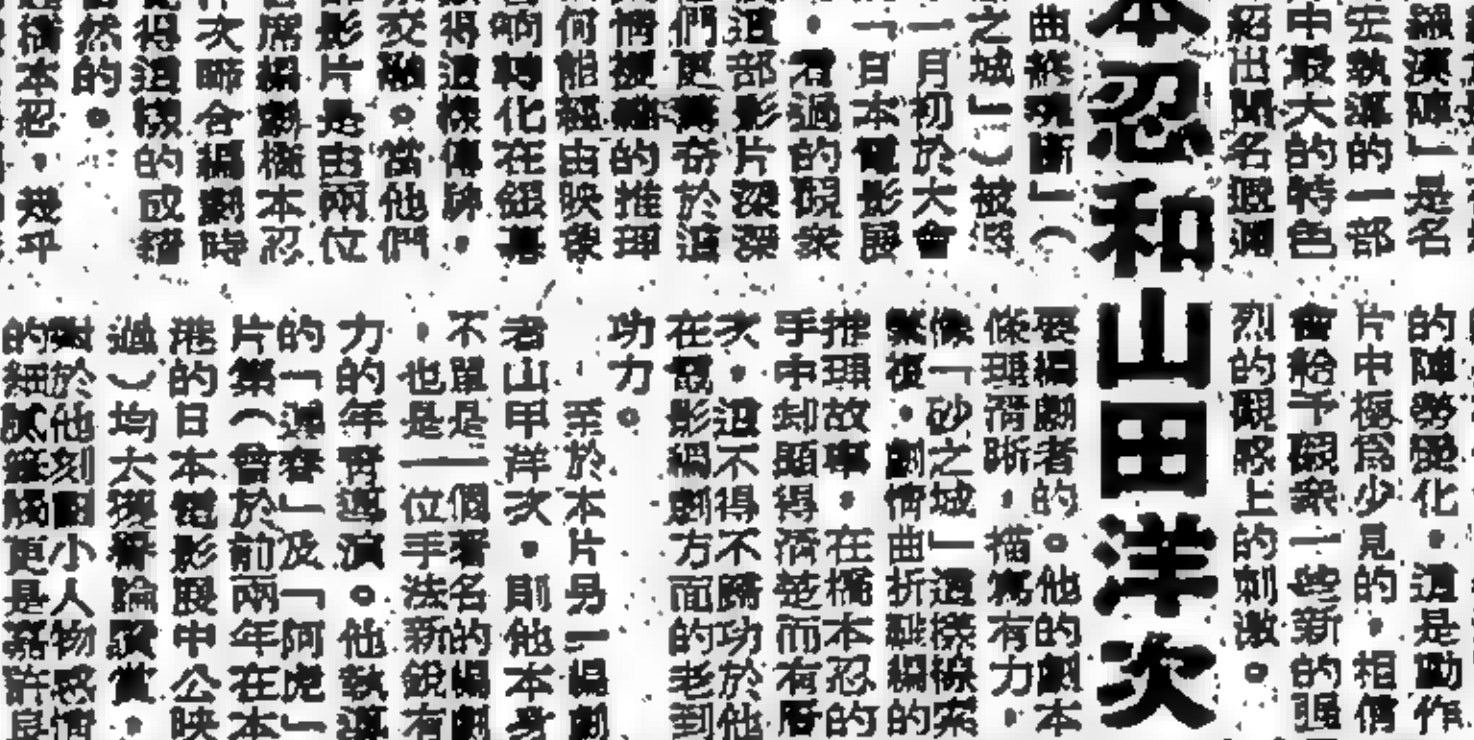 陣」是名
執導的一部
中最大的特色
出聞名遐邇
本忍和山田洋次
曲終現斷」（
之城」）被選
一月初於大會
「日本電影展
。看過的觀眾
這部影片深深
們更驚奇於這
情複雜的推理
何能經由映象
响轉化在銀幕
得這樣傳神，
交融。當他們
影片是由兩位
席編劇橋本忍
次師合編劇時
得這樣的成績
然的。
橋本忍，幾乎
的陣勢變化。這是動作
片中極為少見的，相信
會給予觀眾一些新的強
烈的觀感上的刺激。
要編劇者的。他的劇本
條理清晰，描寫有力，
像「砂之城」這樣檔案
繁複，劇情曲折難編的
推理故事，在橋本忍的
手中卻顯得清楚而有層
次，這不得不歸功於他
在電影編劇方面的老到
功力。
至於本片另一編劇
者山甲洋次，則他本身
不單是一個著名的編劇
，也是一位手法新銳有
力的年青導演。他執導
的「遙春」及「阿虎」
片集（曾於前兩年在本
港的日本電影展中公映
過）均大獲論讚賞，
對於他刻劃小人物感情
的細膩筆觸更是嘉許良